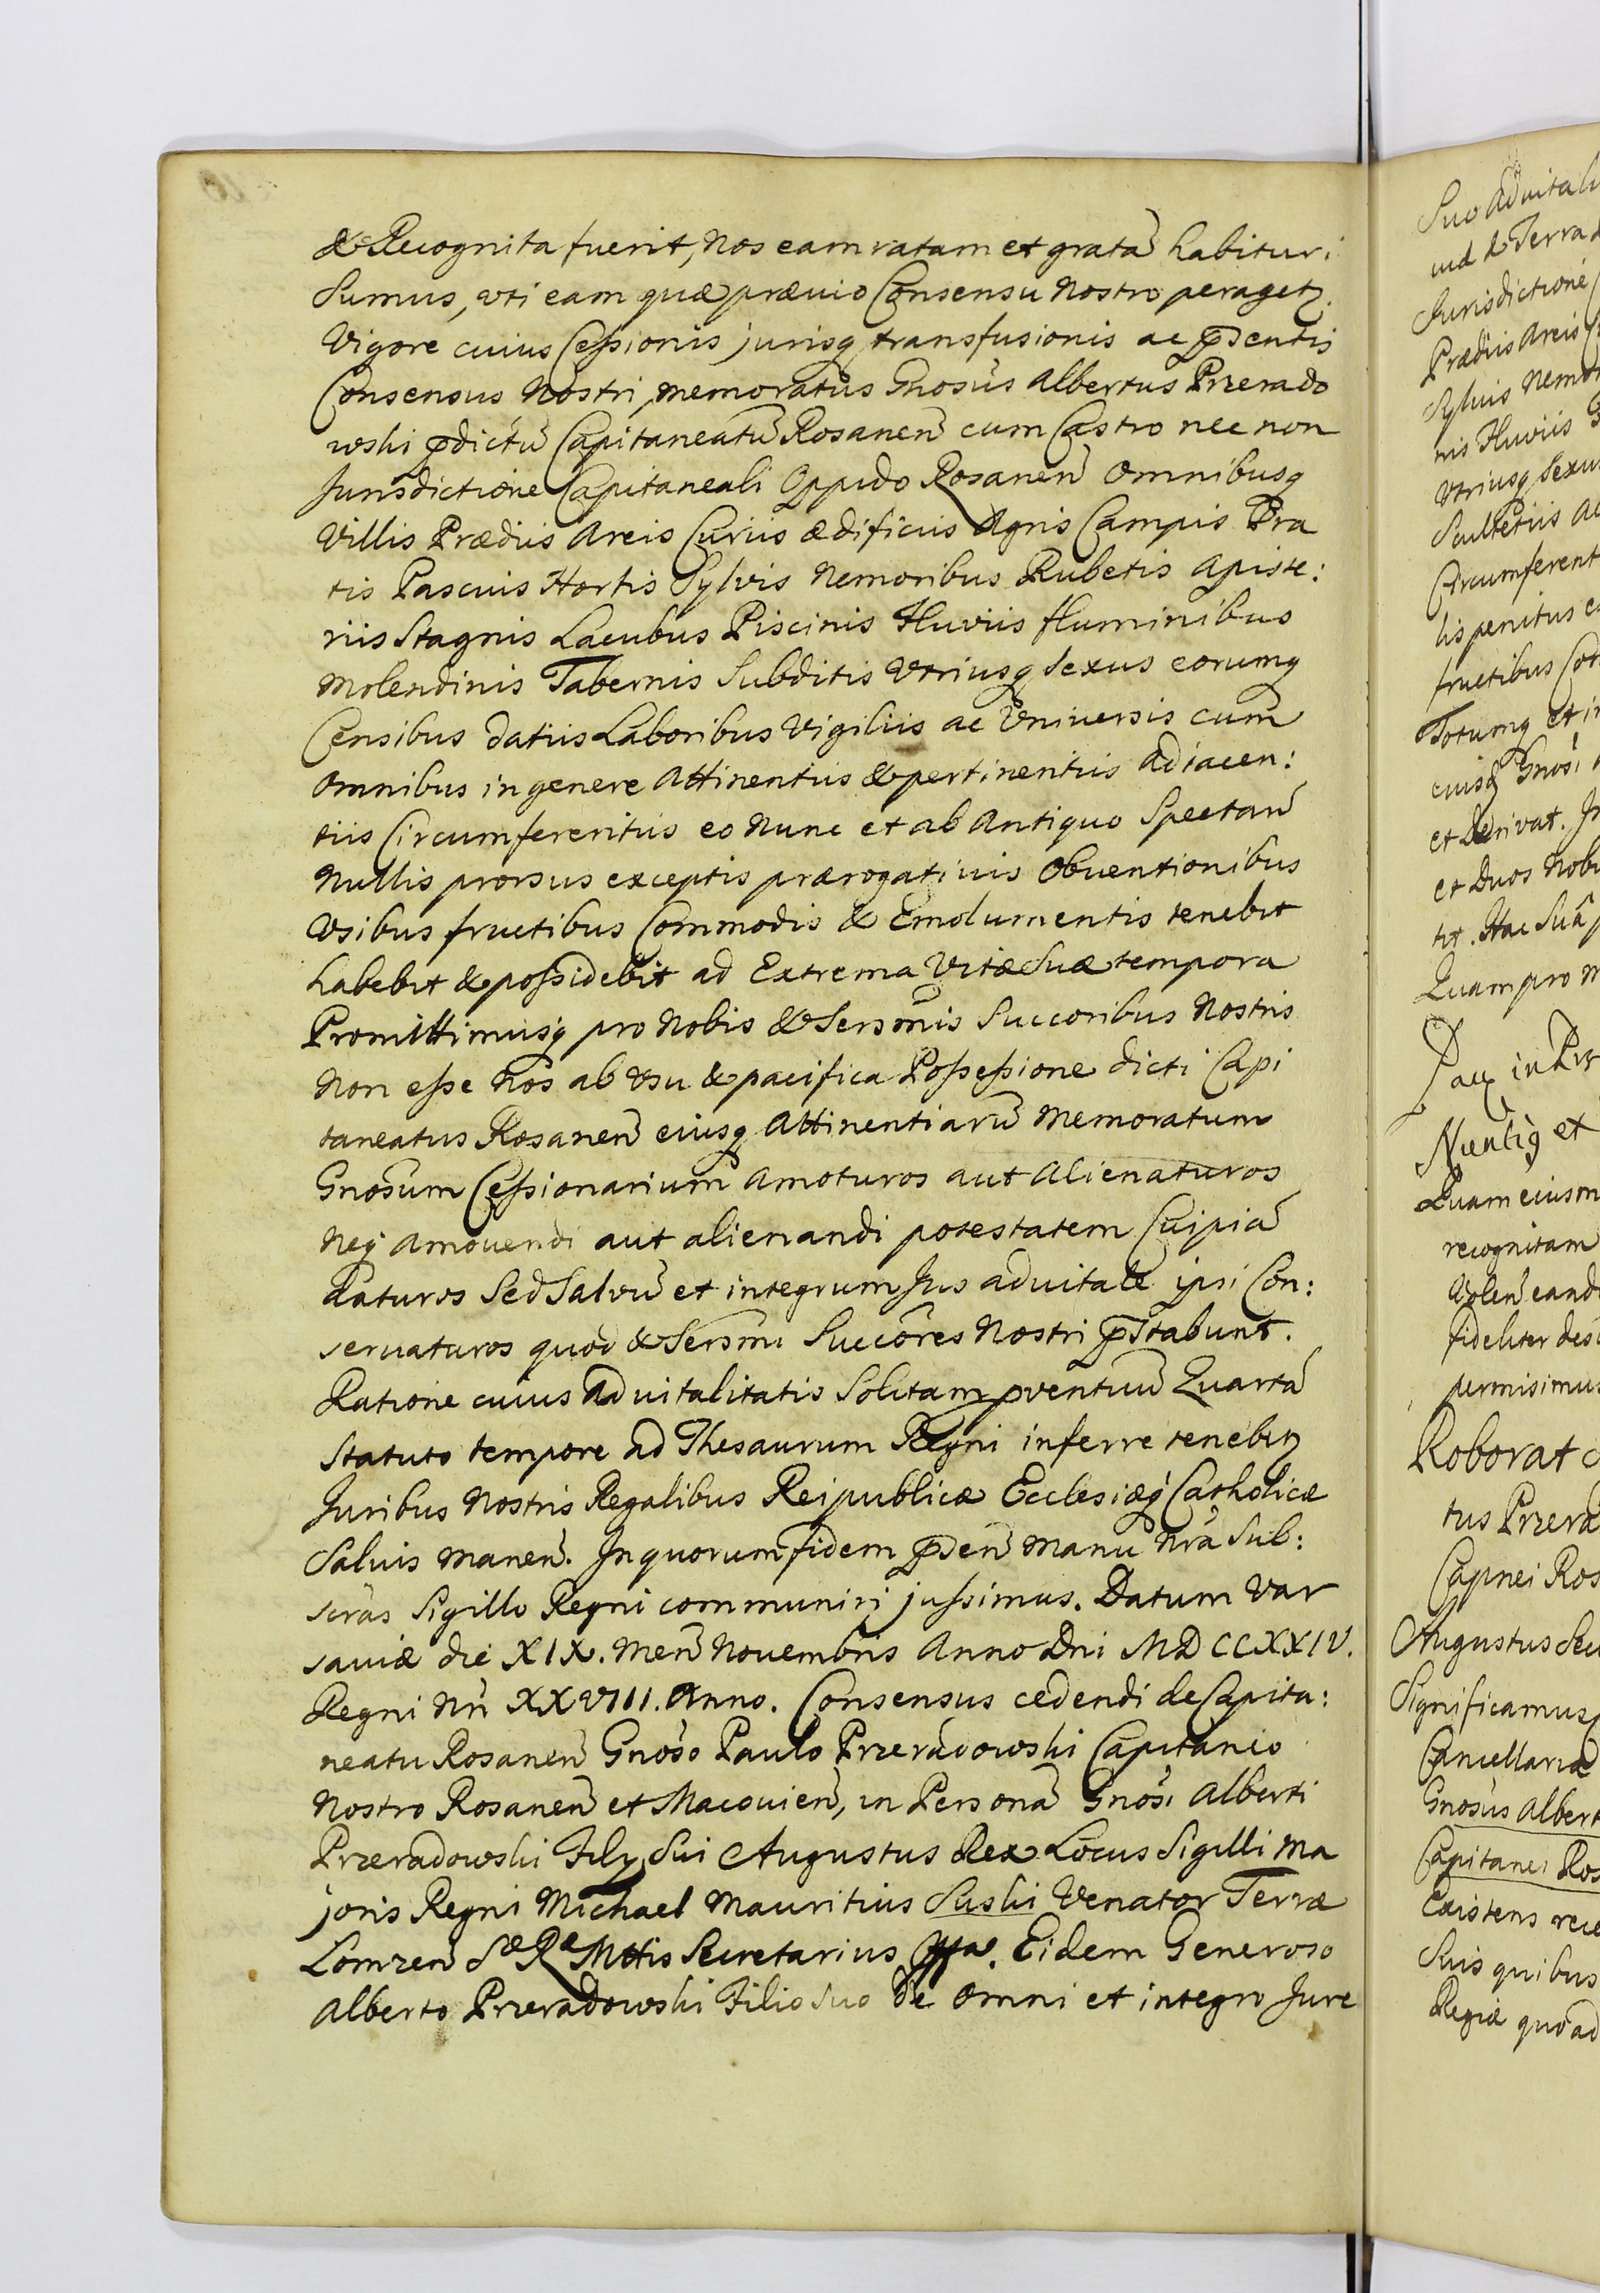 & Recognita fuerit, Nos eam ratam et gratã habituri
Sumus, uti eam quæ prævio Consensu Nostro peragetʒ.
Vigore cuius Cessionis jurisqʒ transfusionis ac p̃sentis
Consensus Nostri, memoratus Gnosus Albertus Przerado
wski p̃dictũ Capitaneatũ Rosaneñ cum Castro nec non
Jurisdictione Capitaneali Oppido Rosaneñ Omnibusqʒ
Villis Prædiis Areis Curiis ædificiis Agris Campis Pra
tis Pascuis Hortis Sylvis Nemoribus Rubetis Apiste:
riis Stagnis Lacubus Piscinis Fluviis fluminibus
Molendinis Tabernis Subditis Utriusqʒ Sexus eorumqʒ
Censibus datiis Laboribus Vigiliis ac Universis cum
Omnibus in genere Attinentiis & pertinentiis Adiacen:
tiis Circumferentiis eo Nunc et ab Antiquo Spectañ
Nullis prorsus exceptis prærogativis Obventionibus
Usibus fructibus Commodis & Emolumentis tenebit
habebit & possidebit ad Extrema Vitæ Suæ tempora
Promittimusqʒ pro Nobis & Sersm̃is Succoribus Nostris
Non esse Nos ab Usu & pacifica Possessione dicti Capi
taneatus Rosaneñ eiusqʒ Attinentiarũ Memoratum
Gnosum Cessionarium Amoturos aut Alienaturos
Neqʒ Amovendi aut alienandi potestatem Cuipiã
daturos Sed Salvũ et integrum Jus advitale ipsi Con:
servaturos quod & Sersm̃i Succores Nostri p̃stabunt.
Ratione cuius Advitalitatis Solitam pventuũ Quartã
Statuto tempore ad Thesaurum Regni inferre tenebitʒ
Juribus Nostris Regalibus Reipublicæ Ecclesiæqʒ Catholicæ
Salvis maneñ. In quorum fidem p̃señ Manu Nrã Sub:
scras Sigillo Regni communiri jussimus. Datum Var
saviæ die XIX. Meñ Novembris Anno Dni MDCCXXIV.
Regni Nri XXVIII. Anno. Consensus cedendi de Capita:
neatu Rosaneñ Gnoso Paulo Przeradowski Capitaneo
Nostro Rosaneñ et Macovieñ, in Personã Gnosi Alberti
Przeradowski Filij Sui Augustus Rex Locus Sigilli Ma
joris Regni Michael Mauritius Suski Venator Terræ
Lomzeñ Sæ Ræ Mttis Secretarius Mpa. Eidem Generoso
Alberto Przeradowski Filio Suo de Omni et integro Jure
Suo Advitali
Jurisdictione
Prædiis Areis
Sylvis Nemor
nis Fluviis
Utriusqʒ Sexus
Scultetiis
Circumferent
lis penitus
fructibus
Totumqʒ et in
cuiusqʒ Gnosi
et Derivat.
et Duos Nob
tit. Hac Suã
Quam pro
Quam eiusm
recognitam
Voleñ eand
fideliter
permisimus
Roborat
tus Przera
Capnei Ros
Augustus Sec
Significamus
Cancellaria
Gnosus Albert
Capitanei Ros
Existens rec
Suis quibus
Regiæ quoad